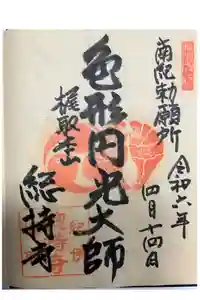 勅願所
令和六年
四月十四日
色形円光大師
梶取本山
総持寺